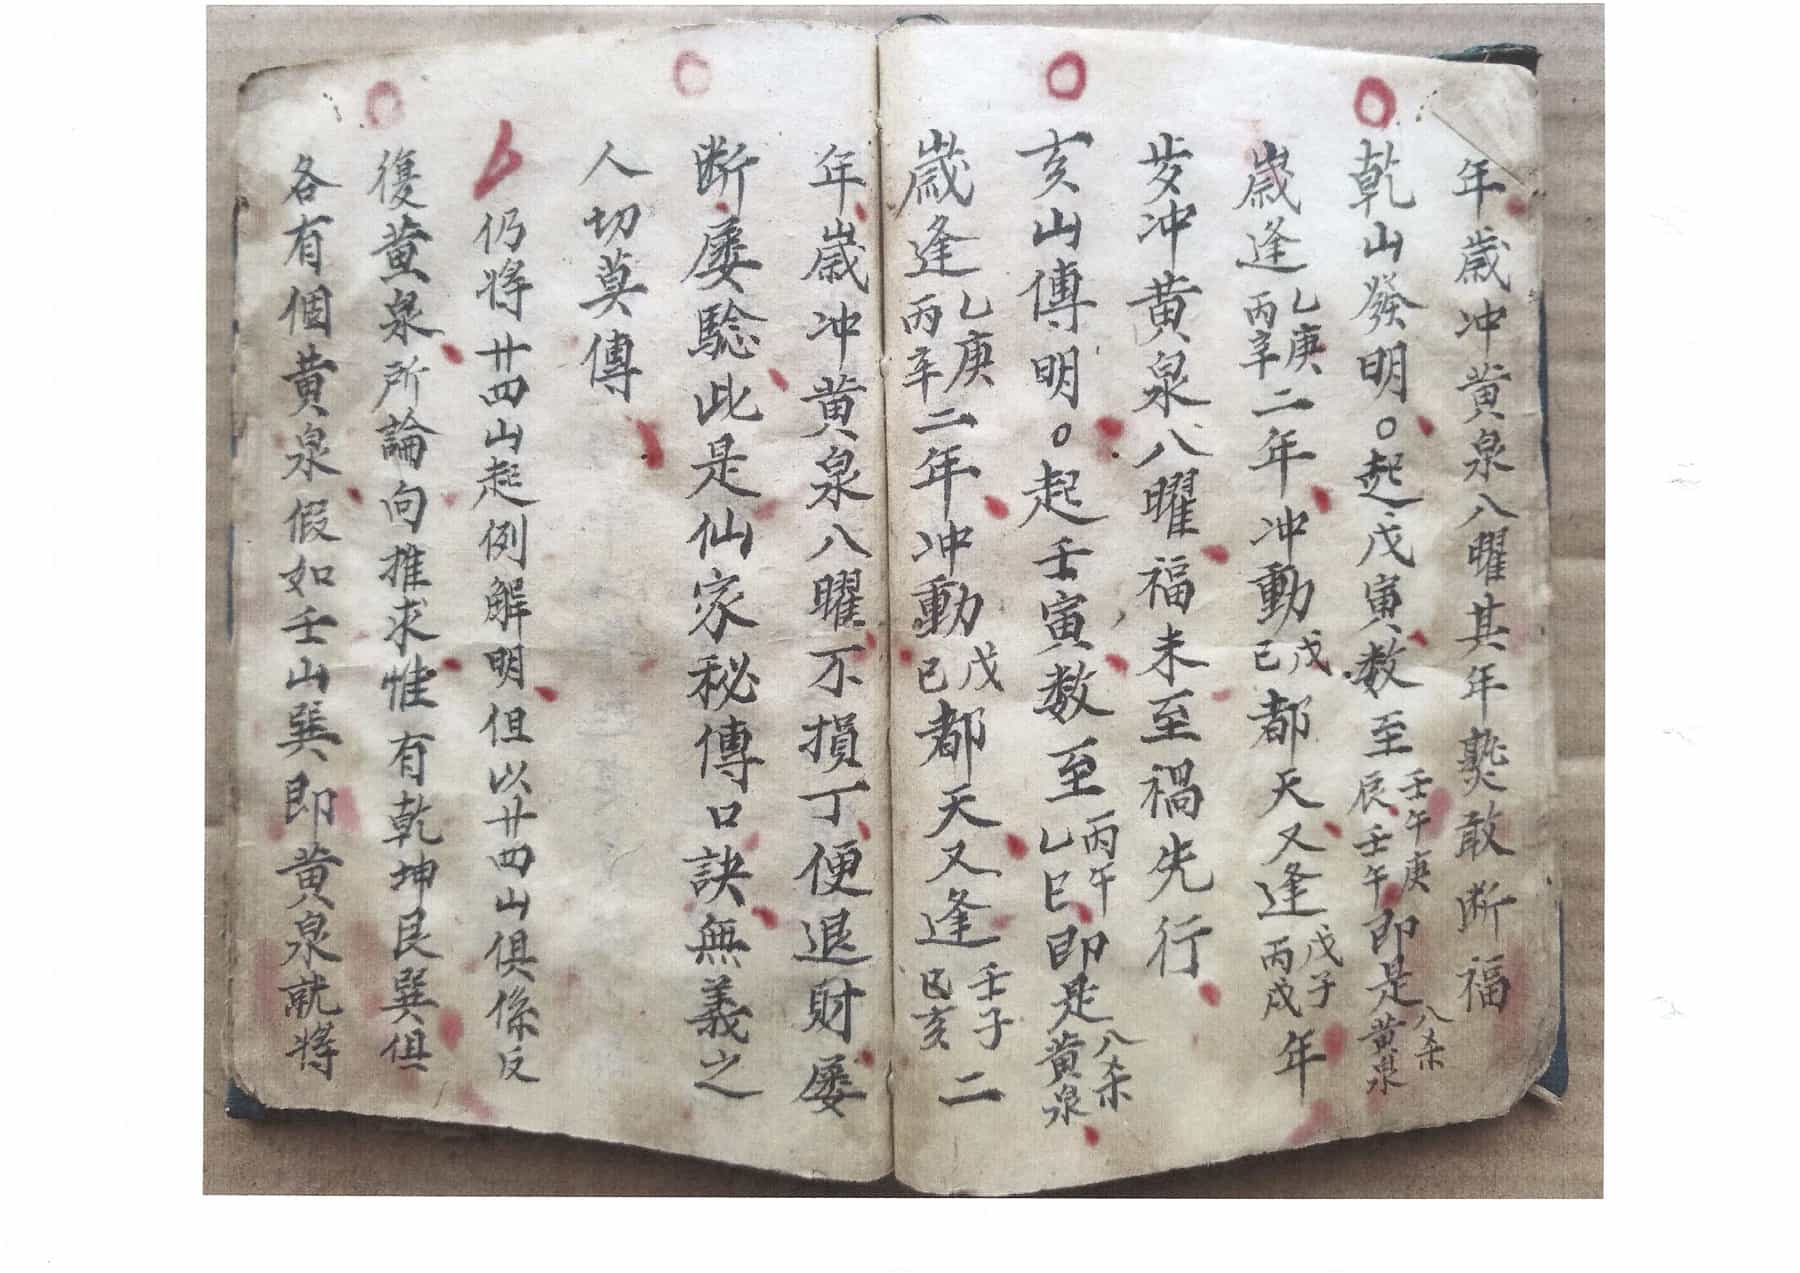 年歲冲黃泉八曜其年婜敢断福
乾山發明○起戊寅数至壬午庚辰壬午即是八杀黃泉
歲逢乙庚丙辛二年冲動戊己都天又逢戊子丙戌年
歲冲黃泉八曜福未至禍先行
亥山傳明○起壬寅数至丙午乙巳即是八杀黃泉
歲逢乙庚丙辛二年冲動戊己都天又逢壬子己亥二
年歲冲黃泉八曜不損丁便退財屡
断屡騐此是仙家秘傳口訣無義之
人切莫傳
仍将廿四山起例解明但以廿四山俱係反
復黃泉所論向推求惟有乾坤艮巽俱
各有個黃泉假如壬山巽即黃泉就将